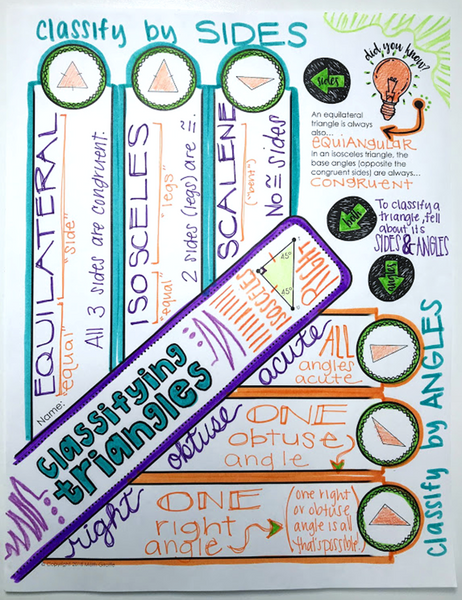 classify by SIDES
EQUILATERAL
"equal" "side"
All 3 sides are congruent.
ISOSCELES
"equal" "legs"
2 sides (legs) are ≅.
SCALENE
No ≅ sides
did you know?
sides
An equilateral
triangle is always
also...
EQUIANGULAR
In an isosceles triangle, the
base angles (opposite the
congruent sides) are always...
CONGRUENT
both
To classify a
triangle, tell
about its
SIDES & ANGLES
angles
Name:
classifying
triangles
ISOSCELES
RIGHT
45°
45°
classify by ANGLES
acute
ALL
angles
acute
obtuse
ONE
obtuse
angle
right
ONE
right
angle
(one right
or obtuse
angle is all
that's possible!)